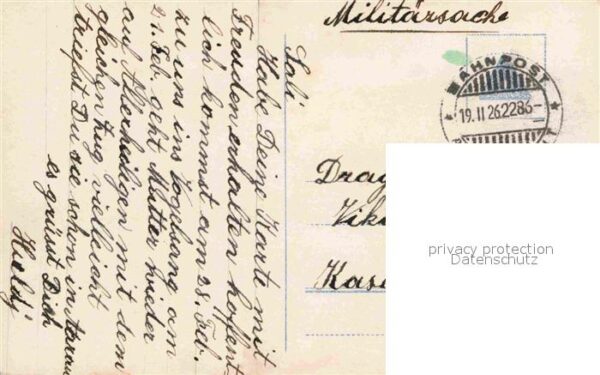 Militärsache
BAHNPOST
19.II 26.2286-
Drag
Vik
Kas
privacy protection
Datenschutz
Sali
Habe Deine Karte mit
Freuden erhalten hoffent-
lich kommst am 28. Feb.
zu uns ins Vogelsang am
21. Feb. geht Mutter wieder
auf Allerheiligen mit dem
gleichen Zug vielleicht
triffst Du die schon in Aarau
es grüsst Dich
Huldi